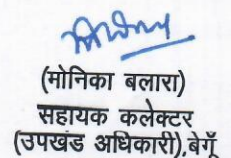 (मोनिका बलारा)
सहायक कलेक्टर
(उपखंड अधिकारी),बेगूँ